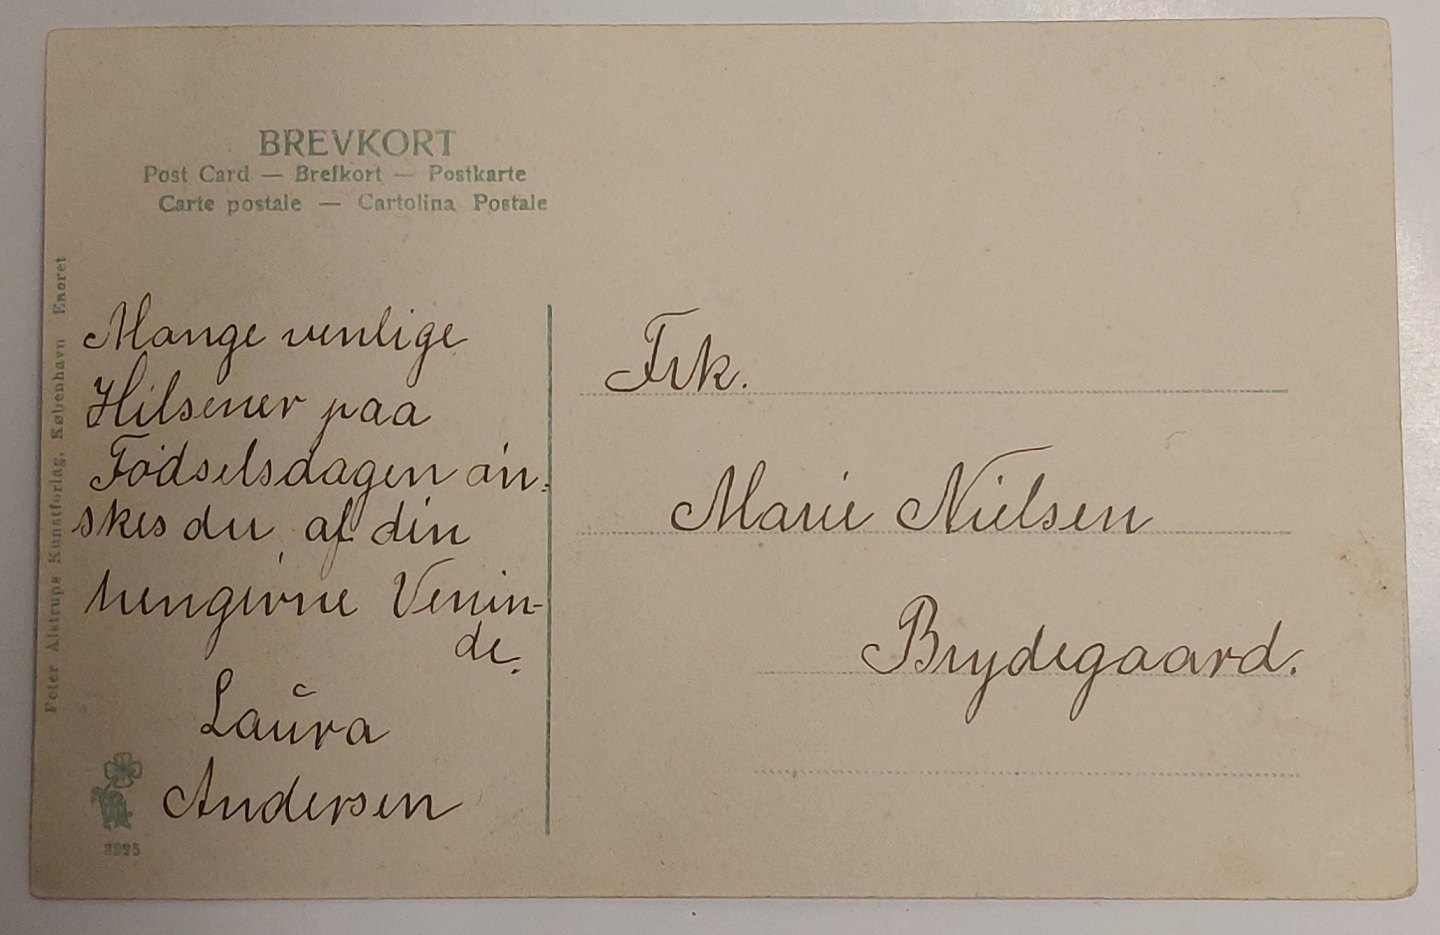 BREVKORT
Post Card — Brefkort — Postkarte
Carte postale — Cartolina Postale
Peter Alstrups Kunstforlag, København Eneret
Mange venlige
Hilsener paa
Fødselsdagen øn-
skes du af din
hengivne Venin-
de.
Laura
Andersen
2925
Frk.
Marie Nielsen
Brydegaard.